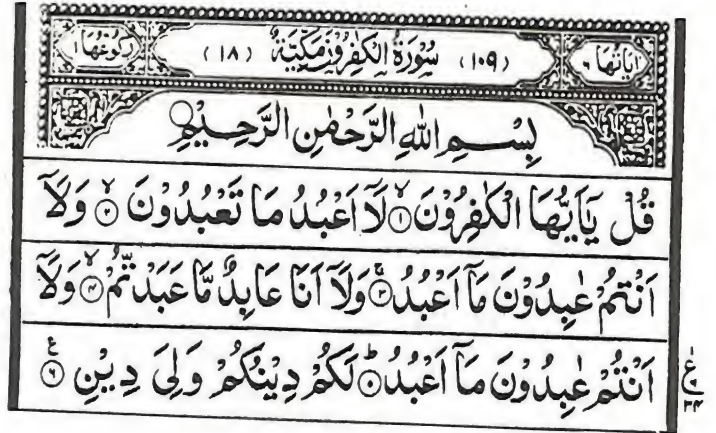 اٰيَاتُهَا ٦ (١٠٩) سُوْرَةُ الْكٰفِرُوْنَ مَكِّيَّةٌ (١٨) رُكُوْعُهَا ١
بِسْمِ اللّٰهِ الرَّحْمٰنِ الرَّحِيْمِ
قُلْ يٰۤاَيُّهَا الْكٰفِرُوْنَ ۙ﴿١﴾ لَاۤ اَعْبُدُ مَا تَعْبُدُوْنَ ۙ﴿٢﴾ وَلَاۤ
اَنْتُمْ عٰبِدُوْنَ مَاۤ اَعْبُدُ ۚ﴿٣﴾ وَلَاۤ اَنَا عَابِدٌ مَّا عَبَدْتُّمْ ۙ﴿٤﴾ وَلَاۤ
اَنْتُمْ عٰبِدُوْنَ مَاۤ اَعْبُدُ ؕ﴿٥﴾ لَكُمْ دِيْنُكُمْ وَلِيَ دِيْنِ ۠﴿٦﴾
ع
٣٤